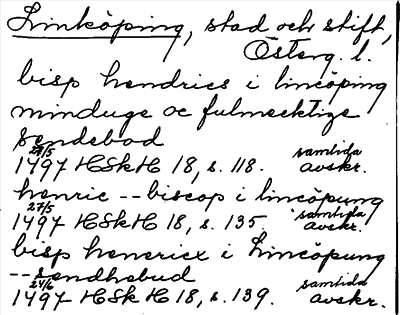 Linköping, stad och stift,
Österg. l.
bisp hendrics i lincöping
minduge oc fulmectige
sendebod
27/5 samtida
1497 HSkH 18, s. 118. avskr.
henric -- biscop i lincöpung
27/5 samtida
1497 HSkH 18, s. 135 avskr.
bisp henricx i Lincöpung
-- sendhebud
24/6 samtida
1497 HSkH 18, s. 139. avskr.